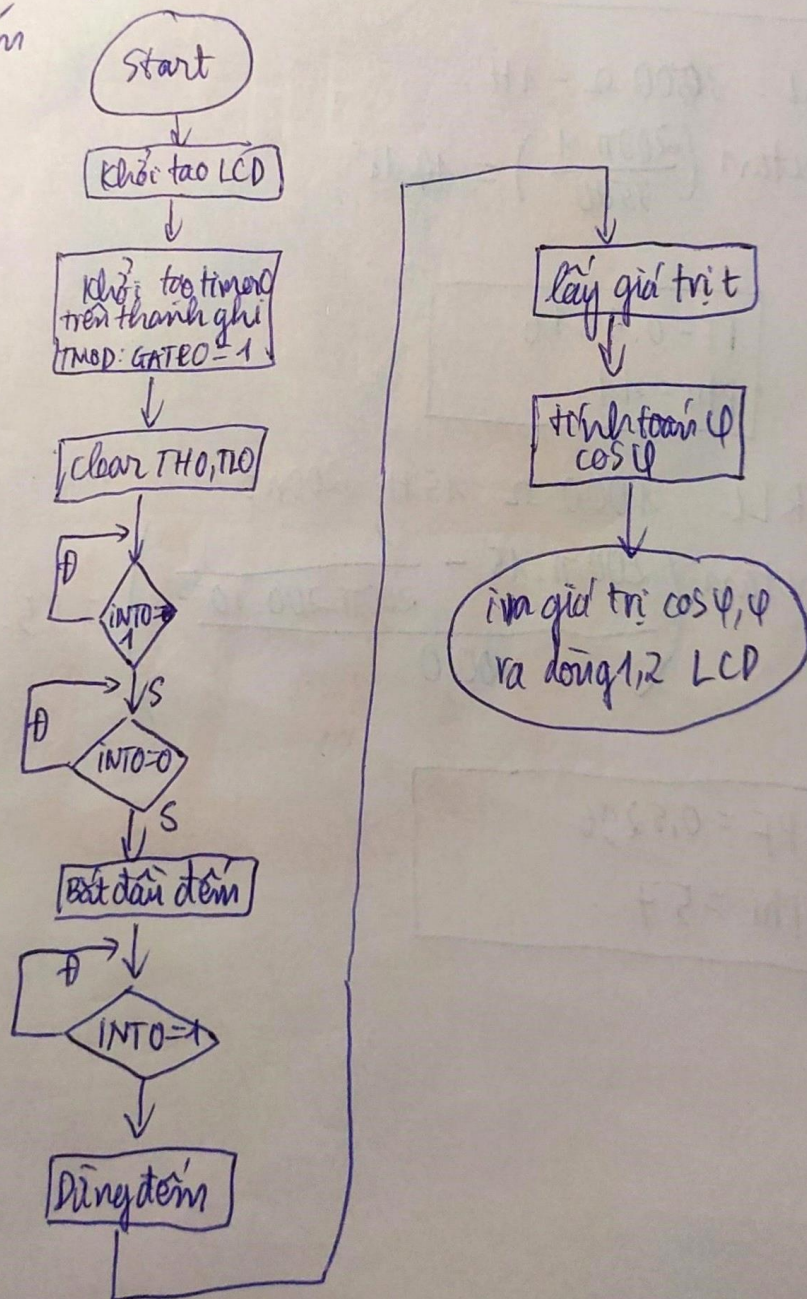 Start
Khởi tạo LCD
Khởi tạo timer0
trên thanh ghi
TMOD: GATE0 = 1
clear TH0, TL0
Đ
INT0=
1
S
Đ
INT0=0
S
Bắt đầu đếm
Đ
INT0=1
Dừng đếm
lấy giá trị t
tính toán φ
cosφ
in giá trị cosφ, φ
ra dòng 1,2 LCD